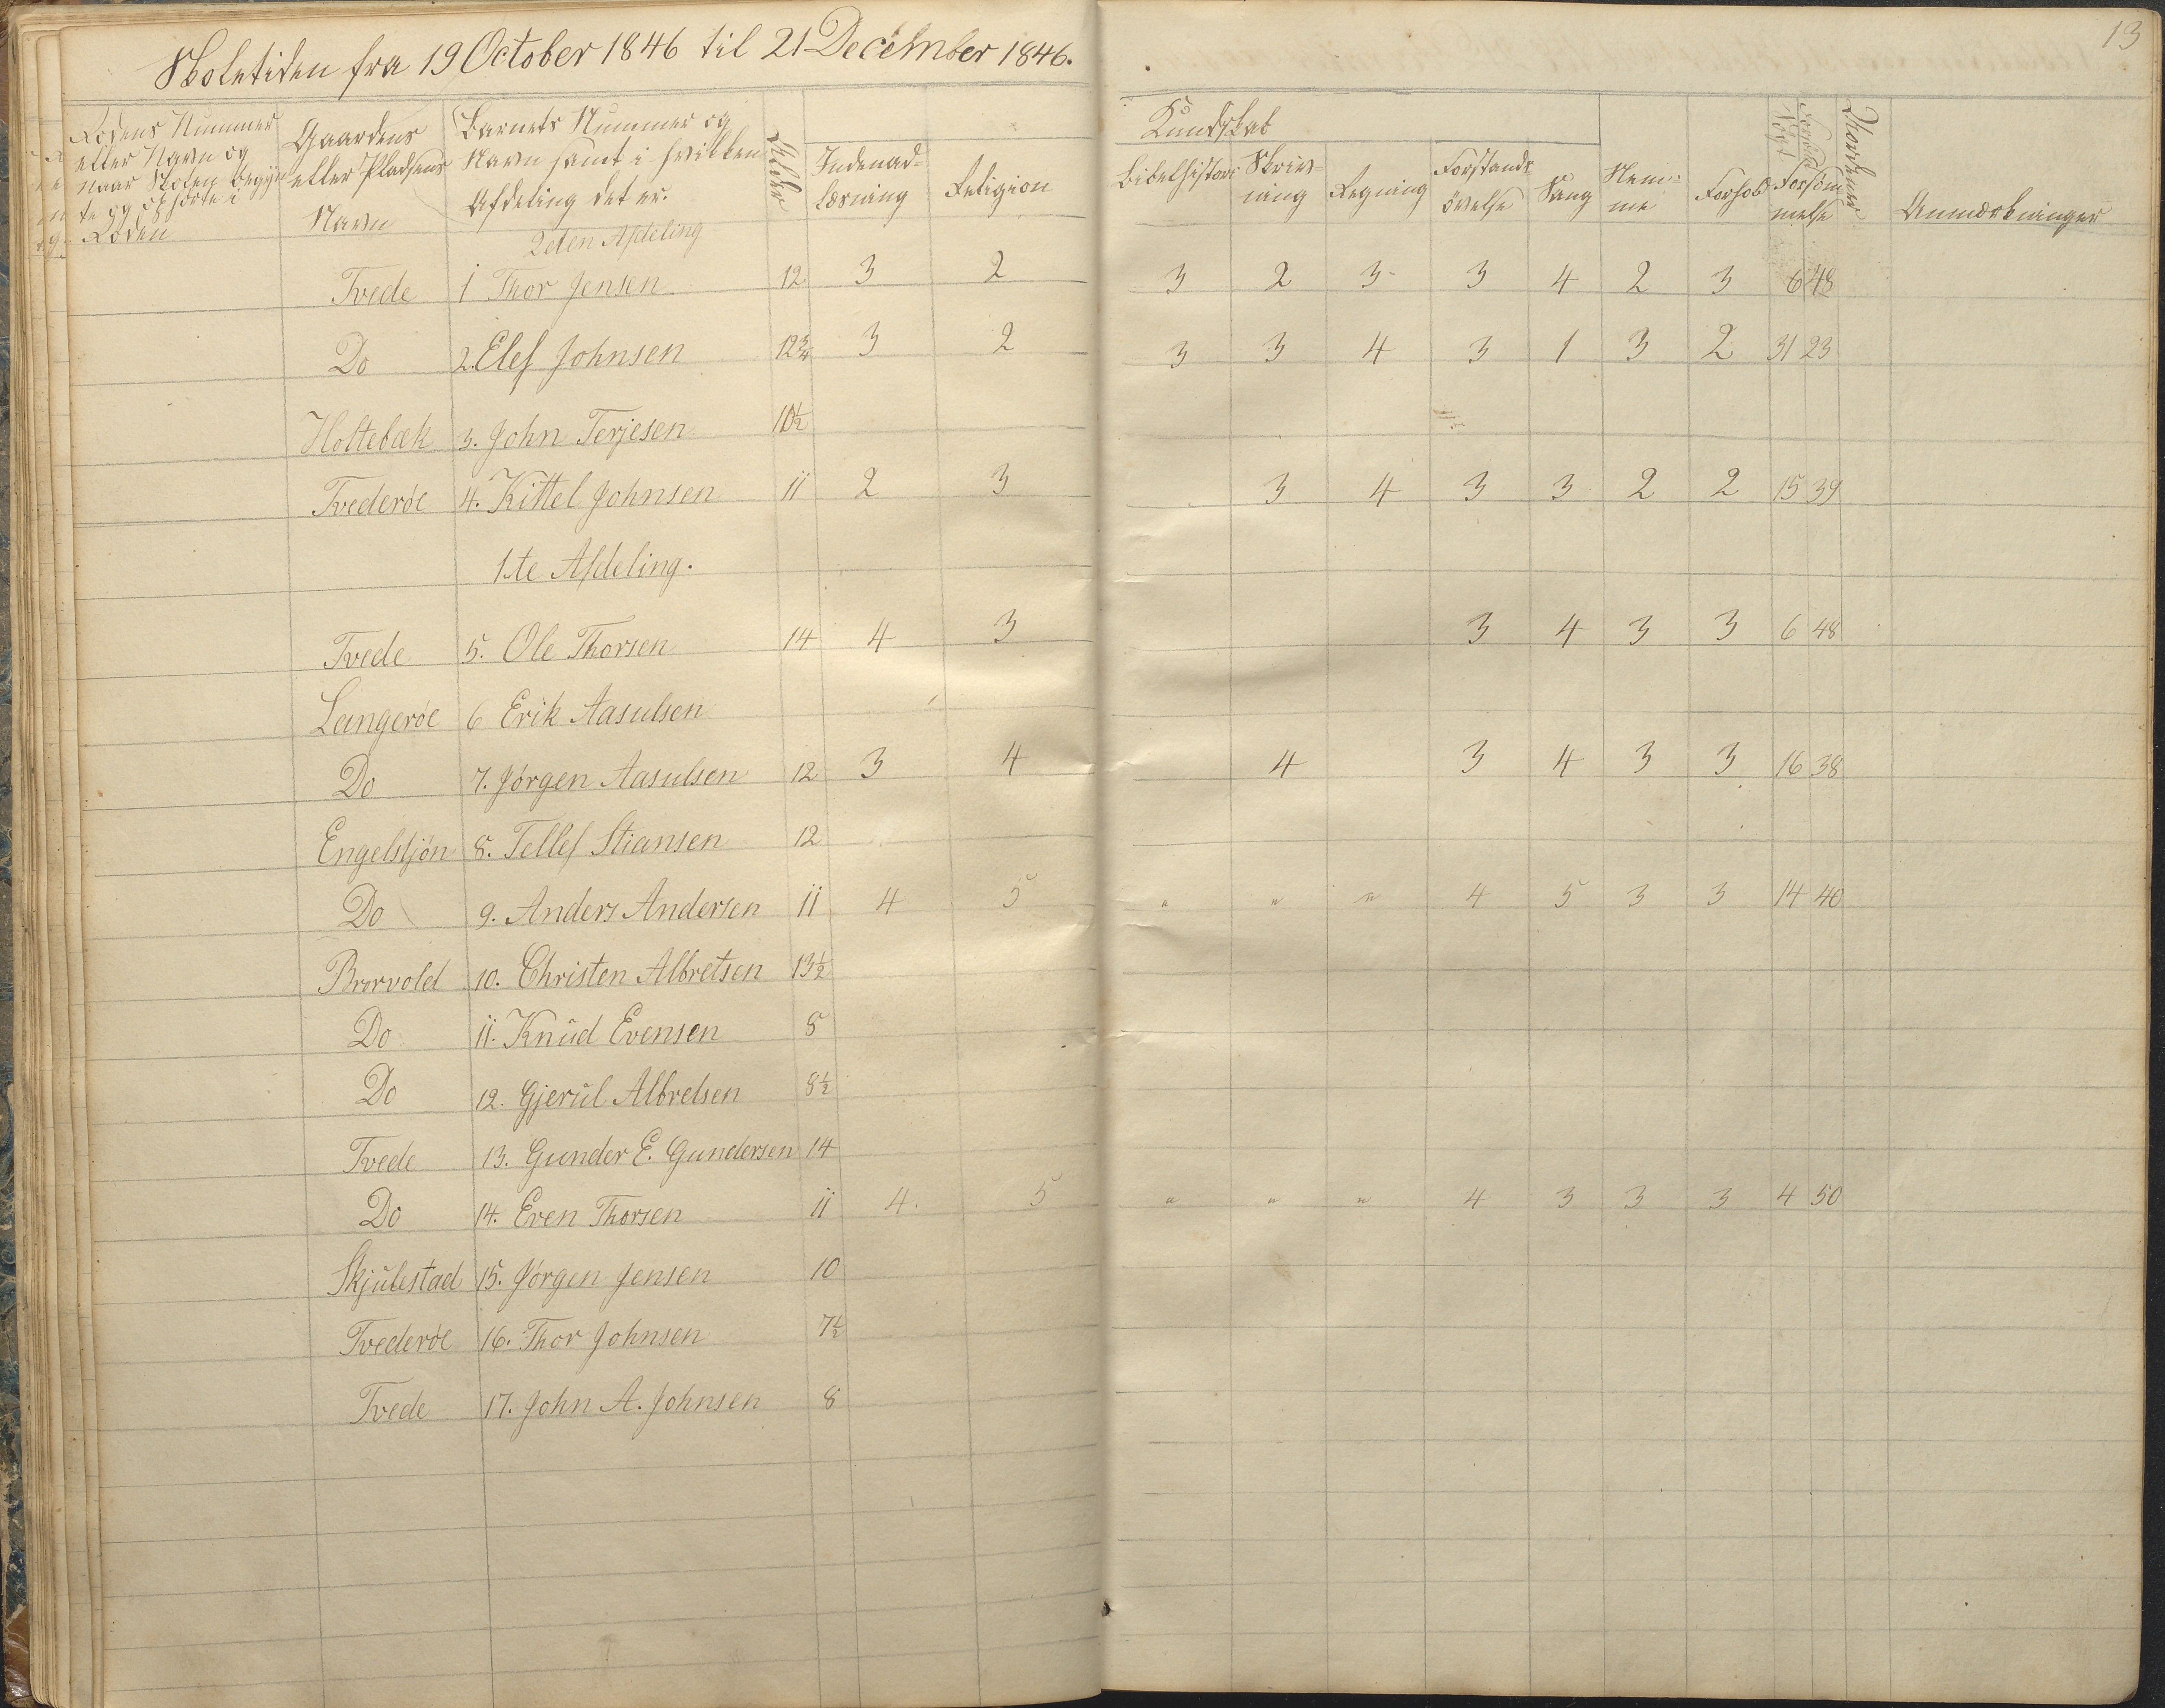 Skoletiden fra 19 October 1846 til 21 December 1846.
13
Rodens Nummer eller Navn og naar Skolen begyn te og ophørte i Roden
Gaardens eller Pladsens Navn
Barnets Nummer og Navn samt i hvilken Afdeling det er.
Alder
Indenad- læsning
Religion
Kundskab
Bibelhistorie
Skriv- ning
Regning
Forstands øvelse
Sang
Nem- me
Forhold
Søgt
Forsøm melse
Anmærkninger
2den Afdeling
Tvede 1 Thor Jensen 12 3 2 3 2 3 3 4 2 3 6 48
Do 2. Elef Johnsen 12¾ 3 2 3 3 4 3 1 3 2 31 23
Holtebæk 3. John Terjesen 10½
Tvederøe 4. Kittel Johnsen 11 2 3 3 4 3 3 2 2 15 39
1ste Afdeling.
Tvede 5. Ole Thorsen 14 4 3 3 4 3 3 6 48
Langerøe 6 Erik Aasulsen
Do 7. Jørgen Aasulsen 12 3 4 4 3 4 3 3 16 38
Engelstjøn 8. Tellef Stiansen 12
Do 9. Anders Andersen 11 4 5 " " " 4 5 3 3 14 40
Brorvold 10. Christen Albretsen 13½
Do 11. Knud Evensen 8
Do 12. Gjerul Albretsen 8½
Tvede 13. Gunder E. Gundersen 14
Do 14. Even Thorsen 11 4. 5 " " " 4 3 3 3 4 50
Skjulestad 15. Jørgen Jensen 10
Tvederøe 16. Thor Johnsen 7½
Tvede 17. John A. Johnsen 8